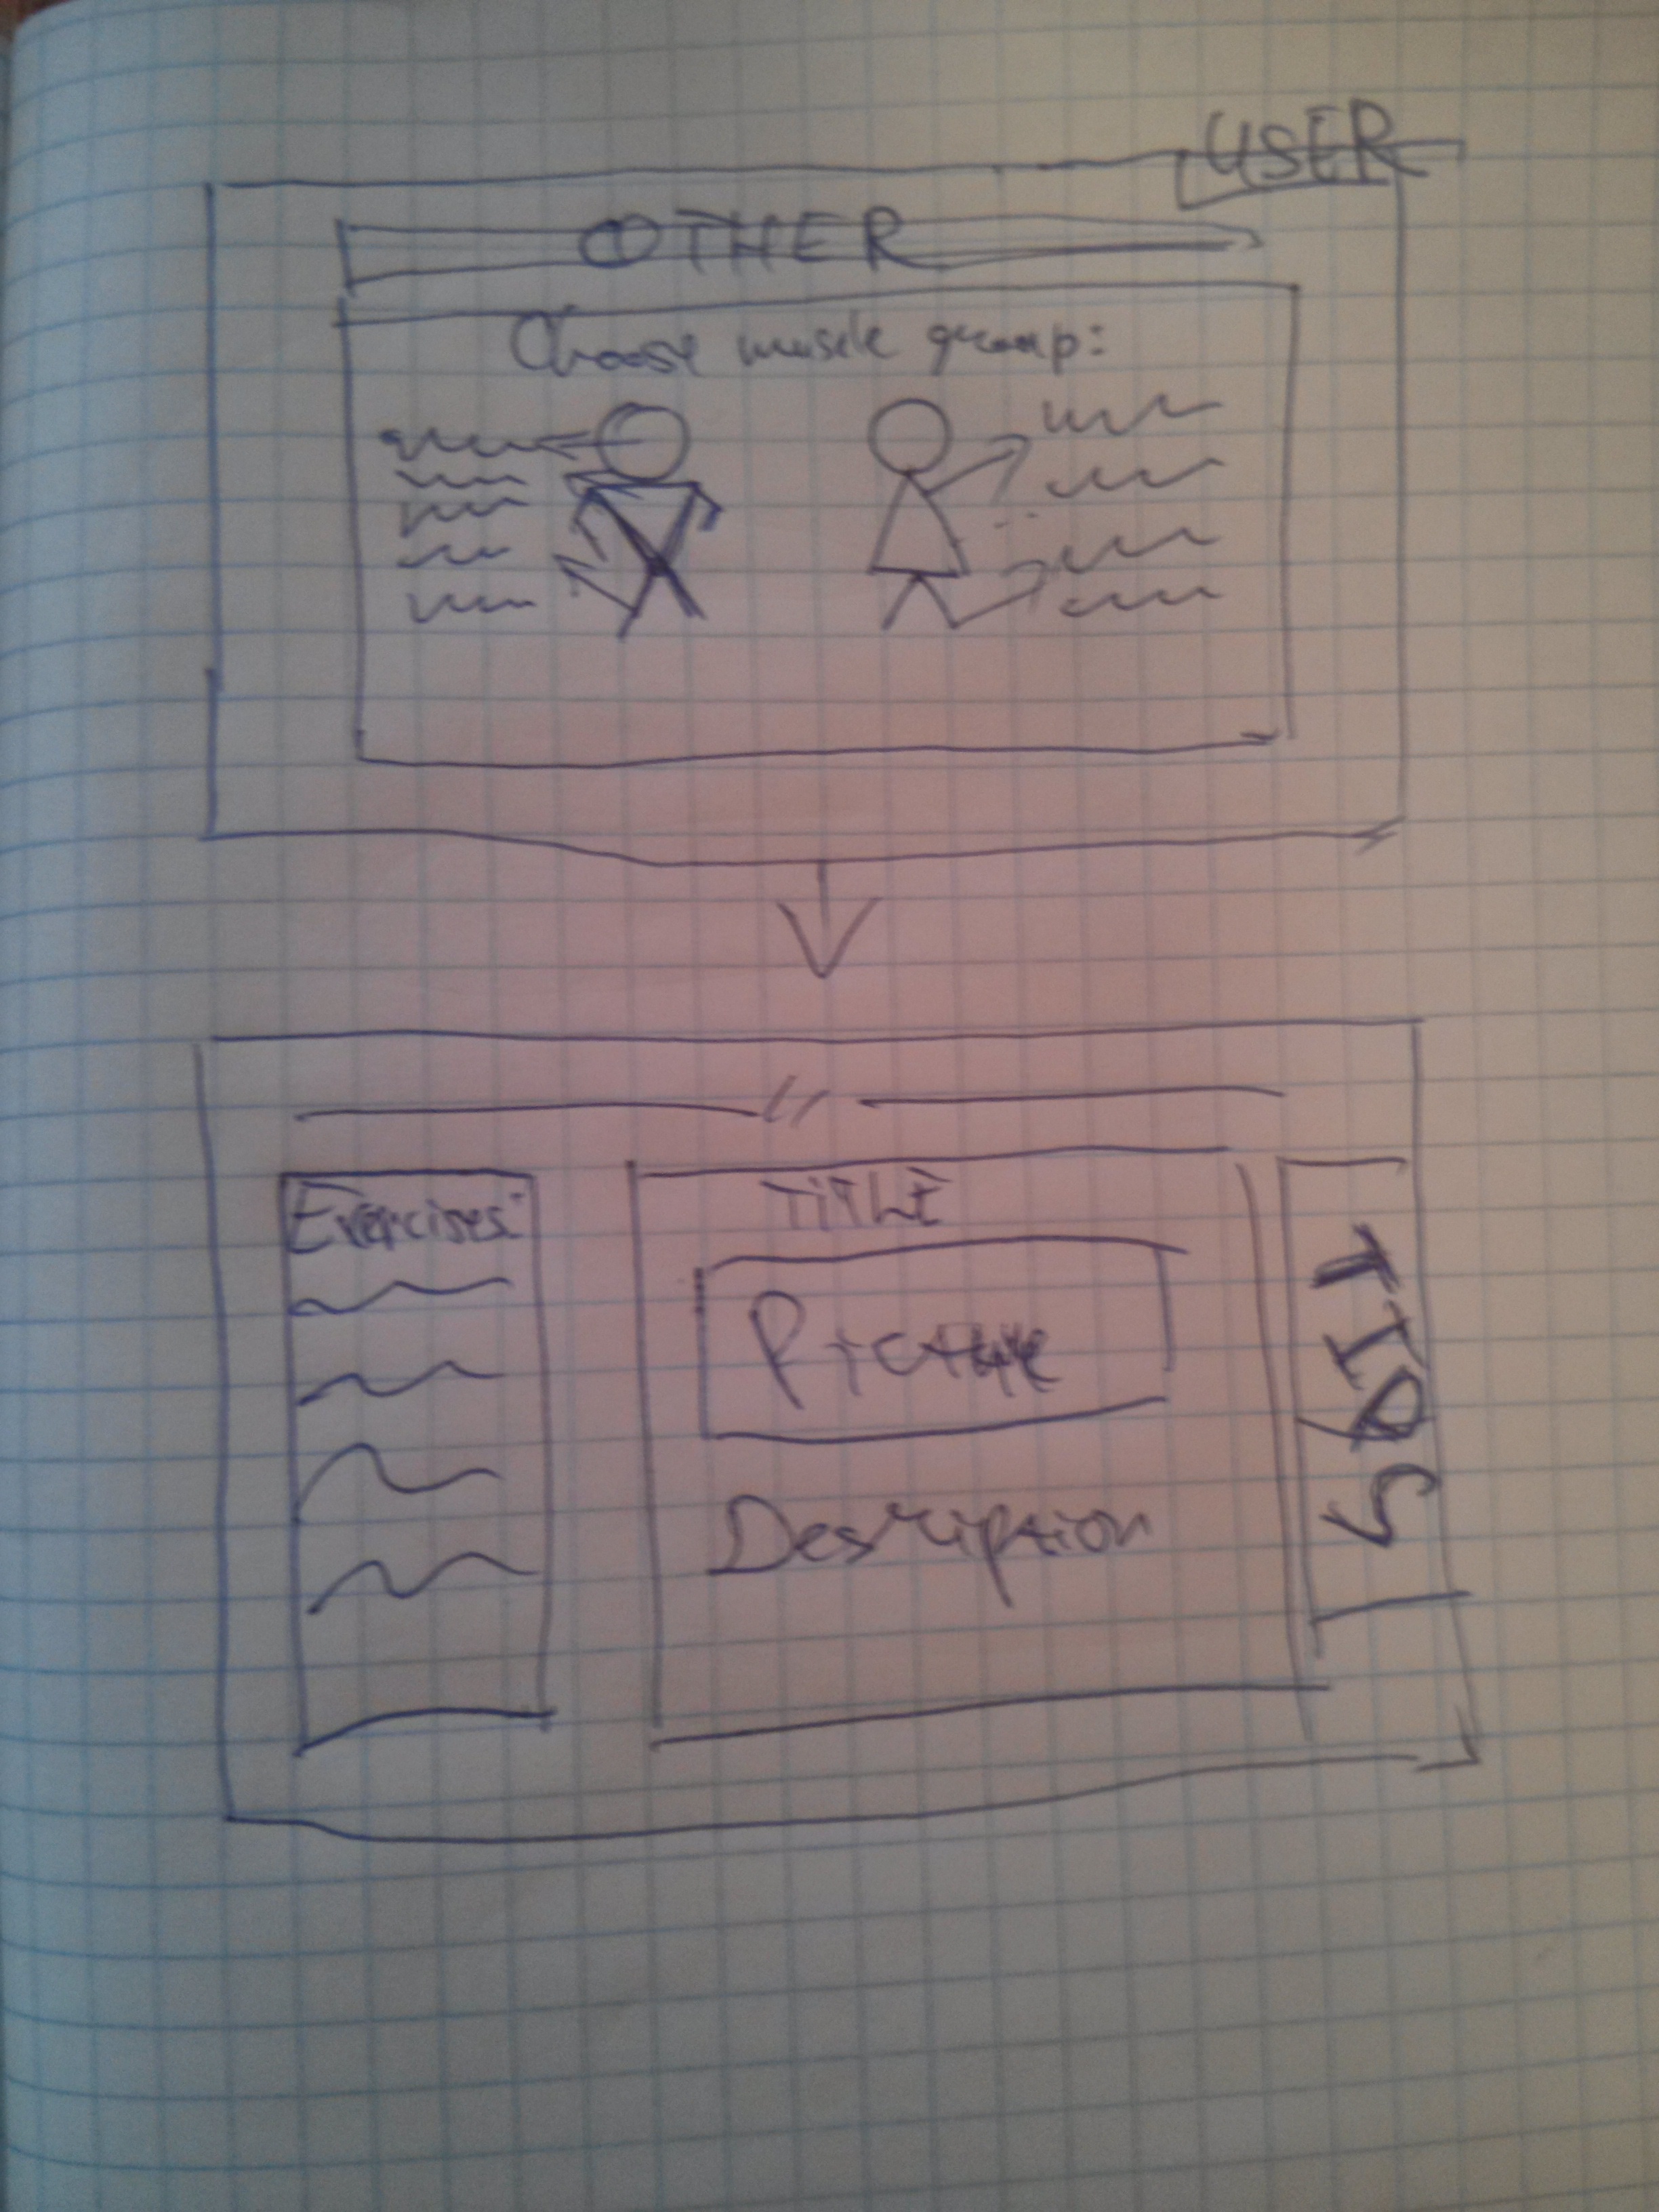 USER
OTHER
Choose muscle group:
Exercises:
TITLE
Picture
Description
TIPS